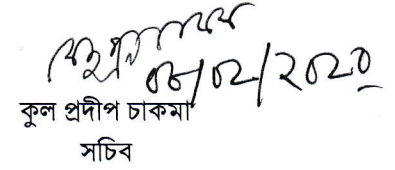 ০৬/০২/২০২৩
কুল প্রদীপ চাকমা
সচিব